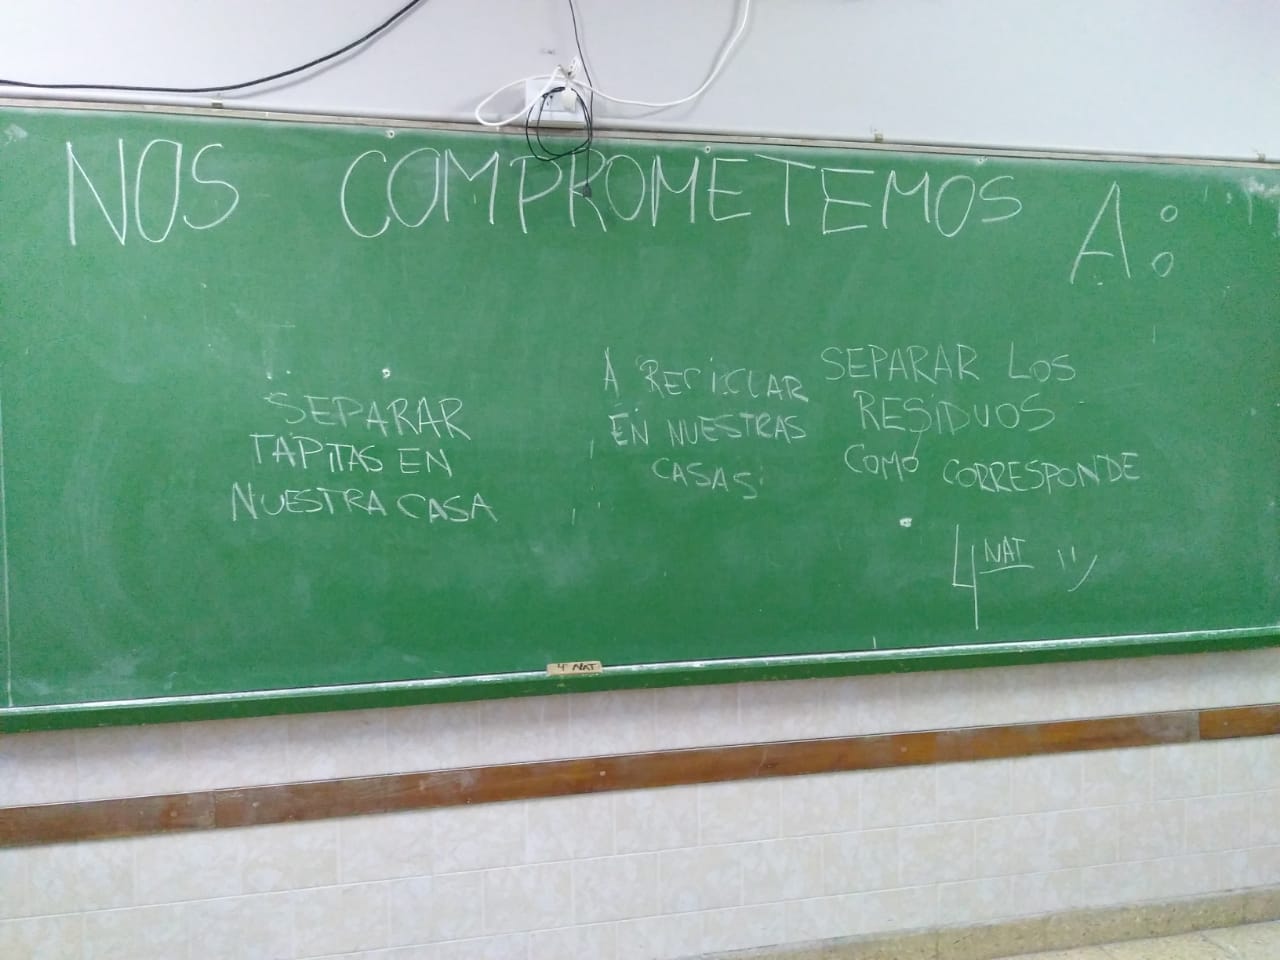 NOS COMPROMETEMOS A:
SEPARAR
TAPITAS EN
NUESTRA CASA
A RECICLAR
EN NUESTRAS
CASAS
SEPARAR LOS
RESIDUOS
COMO CORRESPONDE
4 NAT
4° NAT